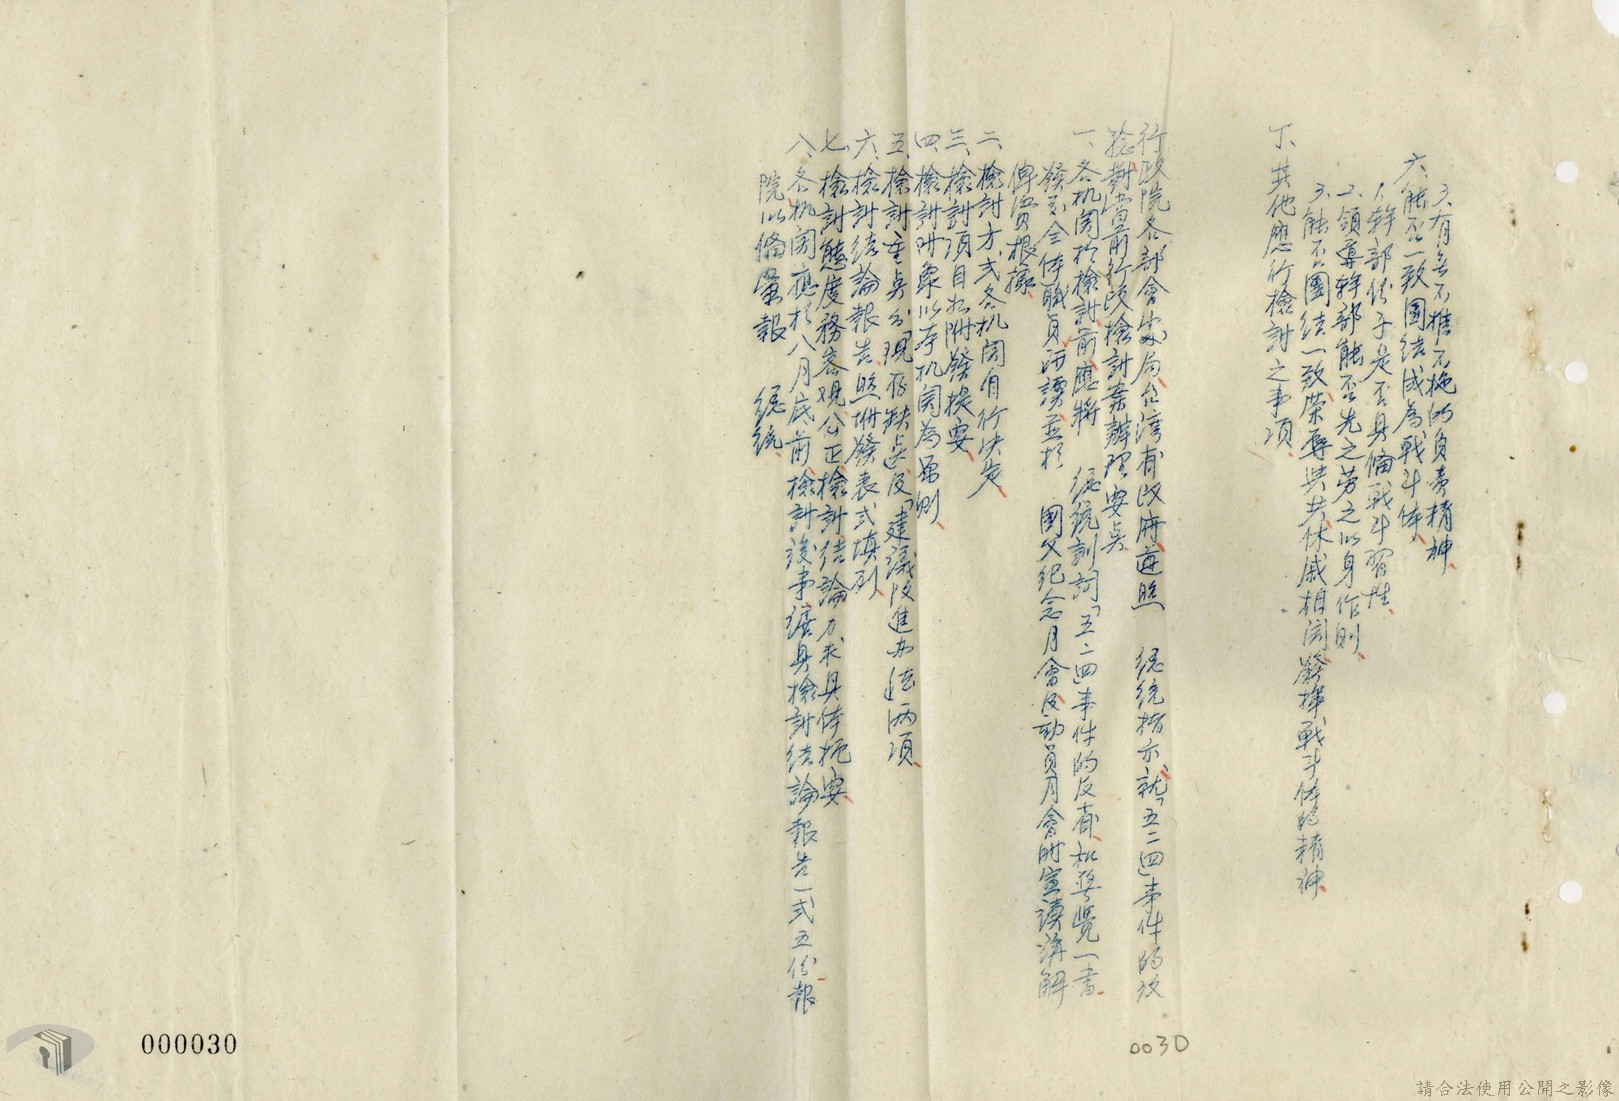 3、有無不推不拖的負責精神、
六、能否一致團結成為戰斗体、
1、幹部份子是否具備戰斗習性、
2、領導幹部能否先之勞之以身作則、
3、能否團結一致榮辱與共休戚相関發揮戰斗体的精神、
丁、其他應行檢討之事項、
行政院各部會處局台湾省政府遵照 總統指示就「五二四」事件的
檢討當前行政檢討案辦理要点
一、各机関於檢討前應將 總統訓詞「五二四事件的反省和警覺」一書
發交全体職員研讀並於 國父紀念月會及動員月會時宣讀講解
俾資根據、
二、檢討方式各机関自行决定、
三、檢討項目如附發提要、
四、檢討對象以本机関為原則、
五、檢討重点分「現存缺点」及「建議改進办法」兩項、
六、檢討結論報告照附發表式填列、
七、檢討態度務客觀公正檢討結論力求具体扼要、
八、各机関應於八月底前檢討竣事繕具檢討結論報告一式五份報
院以備彙報 總統、
0030
000030
請合法使用公開之影像